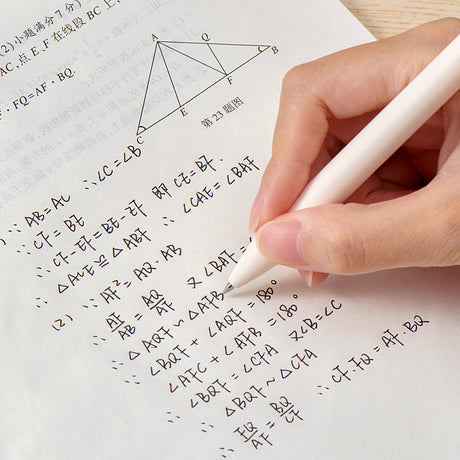 (2)小题满分7分)
AC,点E、F在线段BC上,
F·FQ=AF·BQ.
A
Q
B
F
E
C
第23题图
∵ AB=AC ∴∠C=∠B
∵ CF=BE
∴ CF-EF=BE-EF 即 CE=BF
∴ △ACE≌△ABF ∴ ∠CAE=∠BAF
(2) ∵ AF²=AQ·AB
∴ AF/AB=AQ/AF 又∠BAF
∴ △AQF∽△AFB
∵ ∠BQF+∠AQF=180°
∠AFC+∠AFB=180°
∴ ∠BQF=∠CFA 又∠B=∠C
∴ △BQF∽△CFA
∴ FQ/AF=BQ/CF ∴ CF·FQ=AF·BQ